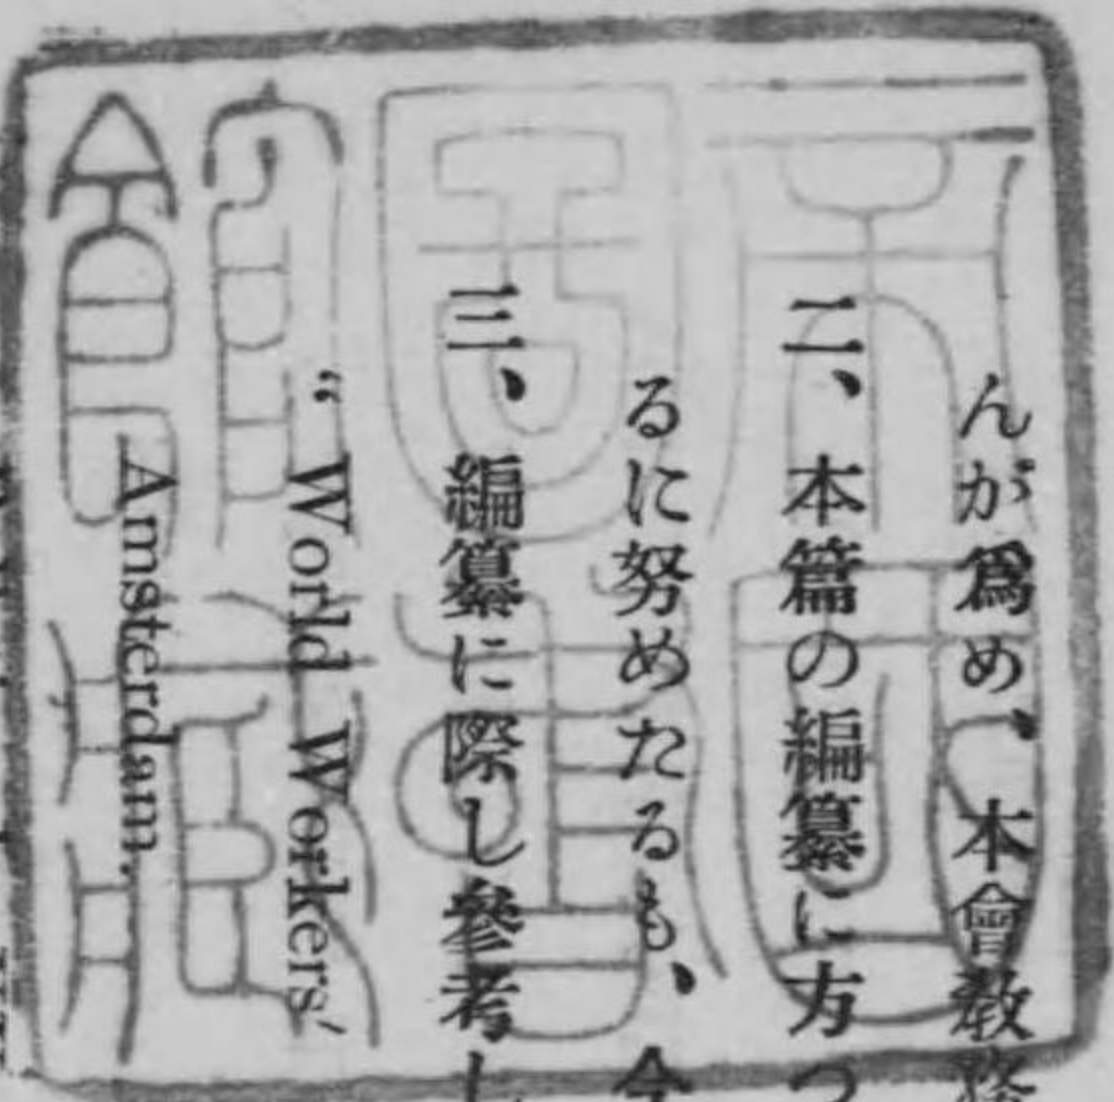 んが爲め、本會教
二、本篇の編纂に方つ
るに努めたるも、今
三、編纂に際し參考し
“ World Workers’
Amsterdam.
帝國
圖書
館藏